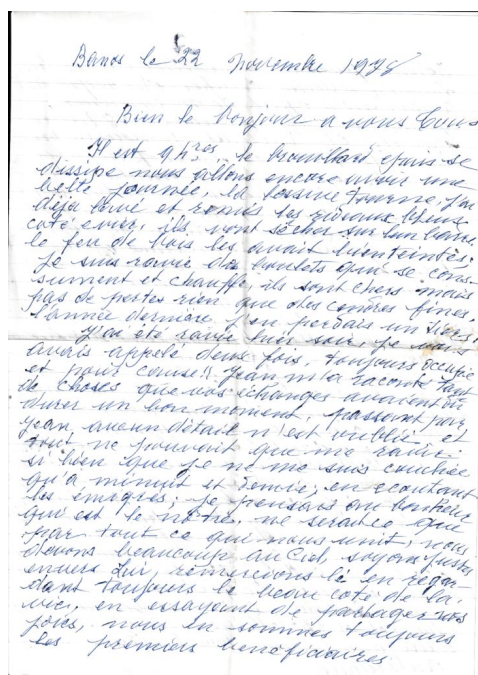 Banos le 22 novembre 1978
Bien le bonjour a vous Tous
Il est 9h res, le brouillard épais se
dissipe nous allons encore avoir une
belle journée, la lessive tourne, j'ai
déja lavé et remis les rideaux bleus
coté evier, ils vont sécher sur leur barre
le feu de bois les avait bien teintés.
Je suis ravie des boulets qui se cons-
sument et chauffe, ils sont chers mais
pas de pertes rien que des cendres fines,
l'année dernière j'en perdais un tiers!
J'ai été ravie hier soir, je vous
avais appelé deux fois, toujours occupé
et pour cause!! Jean m'a raconté tant
de choses que vos échanges avaient dû
durer un bon moment, passant par
Jean, aucun détail n'est oublié et
tout ne pouvait que me ravir
si bien que je ne me suis couchée
qu'a minuit et demie; en écoutant
les émigrés; je pensais au bonheur
qui est le notre, ne serait ce que
par tout ce qui nous unit; nous
devons beaucoup au Ciel, soyons justes
envers Lui remercions le en regar-
dant toujours le beau coté de la
vie, en essayant de partager nos
joies, nous en sommes toujours
les premiers bénéficiaires